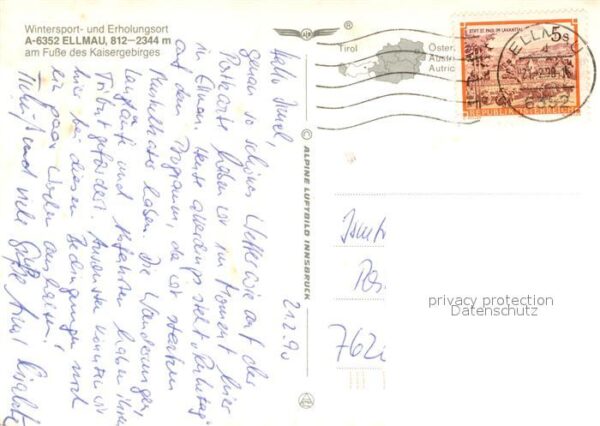 Wintersport- und Erholungsort
A-6352 ELLMAU, 812-2344 m
am Fuße des Kaisergebirges
®
Tirol
Öster
Austri
Autric
STIFT ST. PAUL IM LAVANTTAL
5s
REPUBLIK ÖSTERREICH
ELLMAU
6352
© ALPINE LUFTBILD INNSBRUCK
21.2.90
Hallo
genau so schönes Wetter wie auf der
Postkarte haben wir im Moment hier
in Ellmau. Heute allerdings steht Ruhetag
auf dem Programm, da wir starken
Muskelkater haben. Die Wanderungen,
Langläufe und Abfahrten haben ihren
Tribut gefordert. Ansonsten könnten wir
hier bei diesen Bedingungen noch
ein paar Wochen aushalten.
Tschüß und viele Grüße
762
privacy protection
Datenschutz